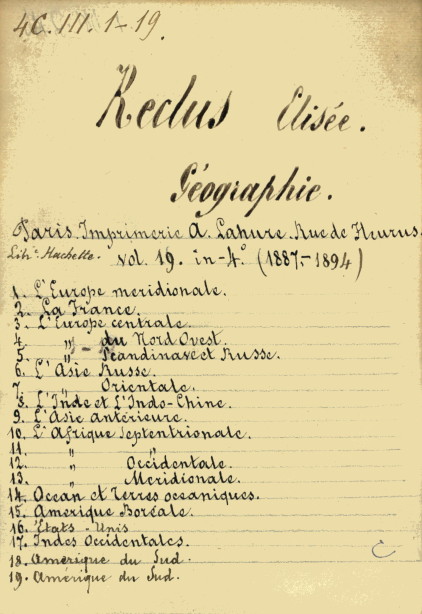 4C. III. 1-19.
Reclus Elisée.
Géographie.
Paris Imprimerie A. Lahure. Rue de Fleurus.
Libr. Hachette. vol. 19. in-4° (1887-1894)
1. L'Europe meridionale.
2. La France.
3. L'Europe centrale.
4. " du Nord Ovest.
5. " Scandinave et Russe.
6. L'Asie Russe.
7. " Orientale.
8. L'Inde et L'Indo-Chine.
9. L'Asie antérieure.
10. L'Afrique Septentrionale.
11. " "
12. " Occidentale.
13. " Meridionale.
14. Ocean et Terres oceaniques.
15. Amerique Boréale.
16. Etats-Unis
17. Indes Occidentales.
18. Amérique du Sud.
19. Amérique du Sud.